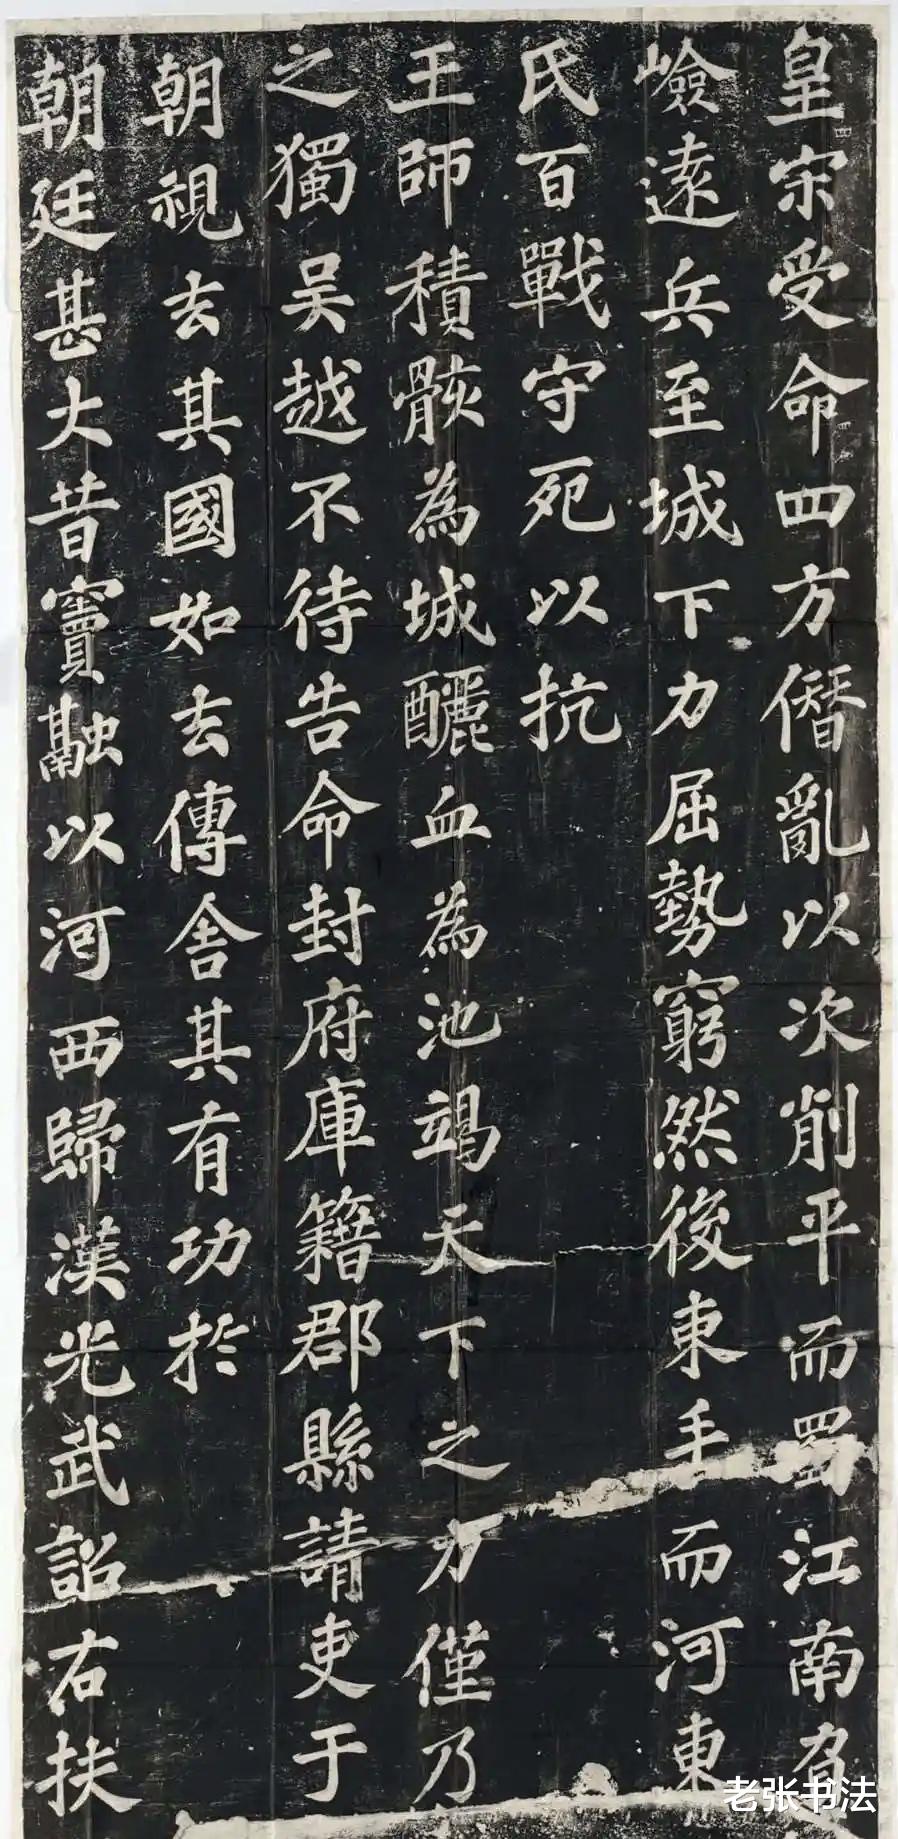 皇宋受命四方僭亂以次削平而蜀江南負
嶮遠兵至城下力屈勢窮然後束手而河東
氏百戰守死以抗
王師積骸為城釃血為池竭天下之力僅乃
之獨吴越不待告命封府庫籍郡縣請吏于
朝視去其國如去傳舍其有功於
朝廷甚大昔竇融以河西歸漢光武詔右扶
老张书法